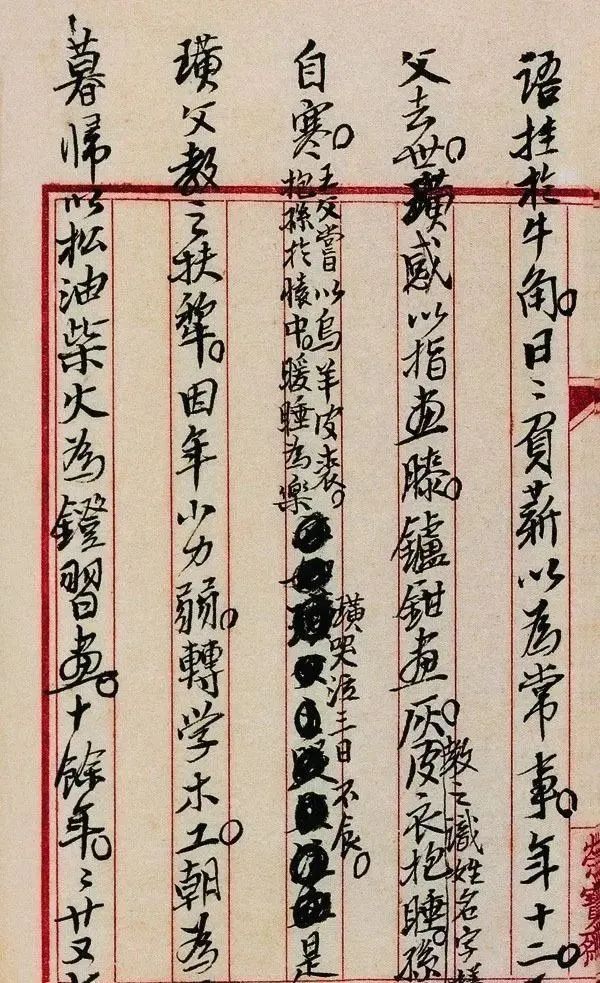 语挂於牛角。日〻負薪以為常事。年十二
父去世。璜感以指画膝。鑪鉗画灰。皮衣抱睡。孫
教之識姓名字
自寒。王父嘗以烏羊皮裘。
抱孫於懷中。暖睡為樂
璜哭泣三日不食。
是
璜父教之扶犂。因年小力弱。轉学木工。朝為
暮歸以松油柴火為鐙習画。十餘年。〻廿又
榮寶齋